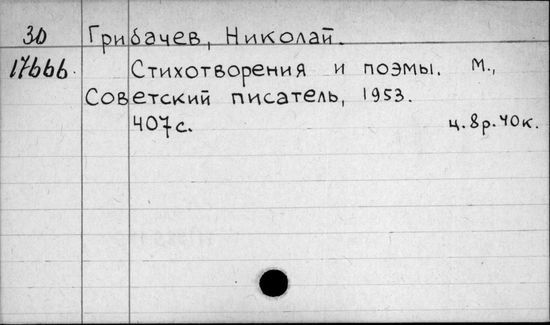 30 Грибачев, Николай.
17666. Стихотворения и поэмы. М.,
Советский писатель, 1953.
407 с. ц. 8 р. 40 к.